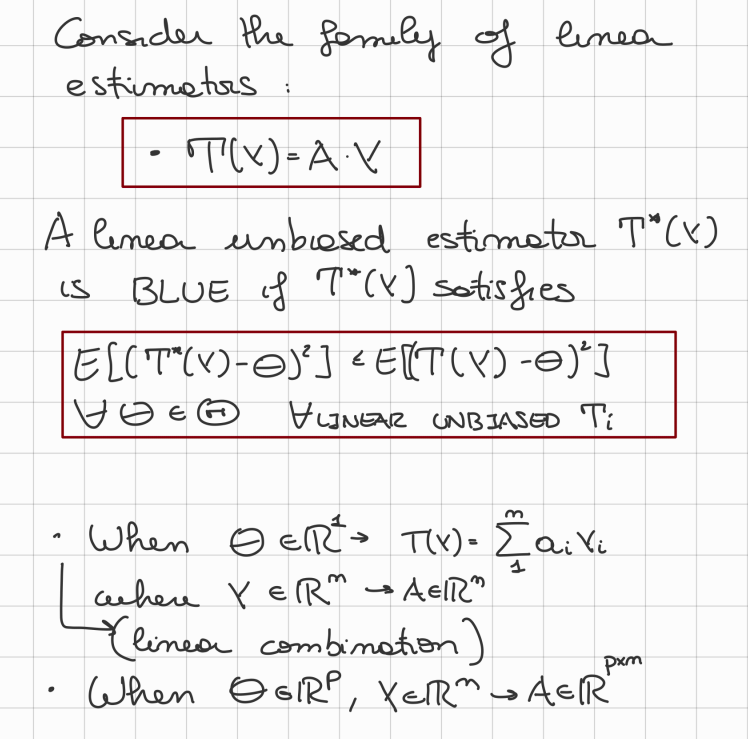 Consider the family of linear
estimators :
• T(Y) = A · Y
A linear unbiased estimator T*(Y)
is BLUE if T*(Y) satisfies
E[(T*(Y)-Θ)²] ≤ E[(T(Y)-Θ)²]
∀ Θ ∈ Ⓗ ∀ LINEAR UNBIASED Ti
• When Θ ∈ ℝ¹ → T(Y) = Σ₁ⁿ aᵢ Yᵢ
where Y ∈ ℝⁿ → A ∈ ℝⁿ
(linear combination)
• When Θ ∈ ℝᵖ, Y ∈ ℝⁿ → A ∈ ℝᵖˣⁿ